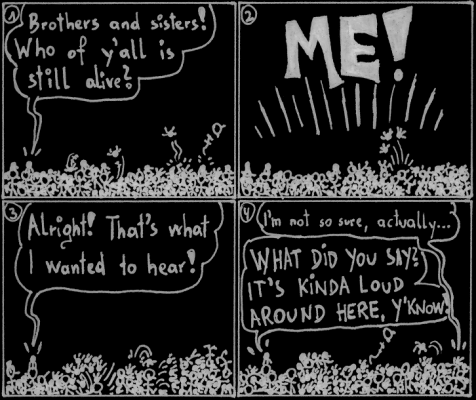 1
Brothers and sisters!
Who of y'all is
still alive?
2
ME!
3
Alright! That's what
I wanted to hear!
4
I'm not so sure, actually...
WHAT DID YOU SAY?
IT'S KINDA LOUD
AROUND HERE, Y'KNOW?